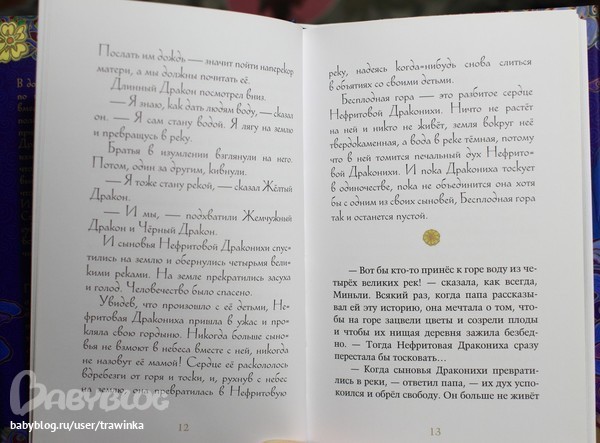 Послать им дождь — значит пойти наперекор
матери, а мы должны почитать её.
Длинный Дракон посмотрел вниз.
— Я знаю, как дать людям воду, — сказал
он. — Я сам стану водой. Я лягу на землю
и превращусь в реку.
Братья в изумлении взглянули на него.
Потом, один за другим, кивнули.
— Я тоже стану рекой, — сказал Жёлтый
Дракон.
— И мы, — подхватили Жемчужный
Дракон и Чёрный Дракон.
И сыновья Нефритовой Драконихи спус-
тились на землю и обернулись четырьмя вели-
кими реками. На земле прекратились засуха
и голод. Человечество было спасено.
Увидев, что произошло с её детьми, Не-
фритовая Дракониха пришла в ужас и про-
кляла свою гордыню. Никогда больше сыно-
вья не взмоют в небеса вместе с ней, никогда
не назовут её мамой! Сердце её раскололось
вдребезги от горя и тоски, и, рухнув с небес
на землю, она превратилась в Нефритовую
12
реку, надеясь когда-нибудь снова слиться
в объятиях со своими детьми.
Бесплодная гора — это разбитое сердце
Нефритовой Драконихи. Ничто не растёт
на ней и никто не живёт, земля вокруг неё
твердокаменная, а вода в реке тёмная, потому
что в ней томится печальный дух Нефрито-
вой Драконихи. И пока Дракониха тоскует
в одиночестве, пока не объединится она хотя
бы с одним из своих сыновей, Бесплодная гора
так и останется пустой.
— Вот бы кто-то принёс к горе воду из че-
тырёх великих рек! — сказала, как всегда,
Миньли. Всякий раз, когда папа рассказы-
вал ей эту историю, она мечтала о том, что-
бы на горе зацвели цветы и созрели плоды
и чтобы их нищая деревня зажила безбед-
но. — Тогда Нефритовая Дракониха сразу
перестала бы тосковать…
— Когда сыновья Драконихи преврати-
лись в реки, — ответил папа, — их дух успо-
коился и обрёл свободу. Он больше не живёт
13
BABYBLOG
babyblog.ru/user/trawinka